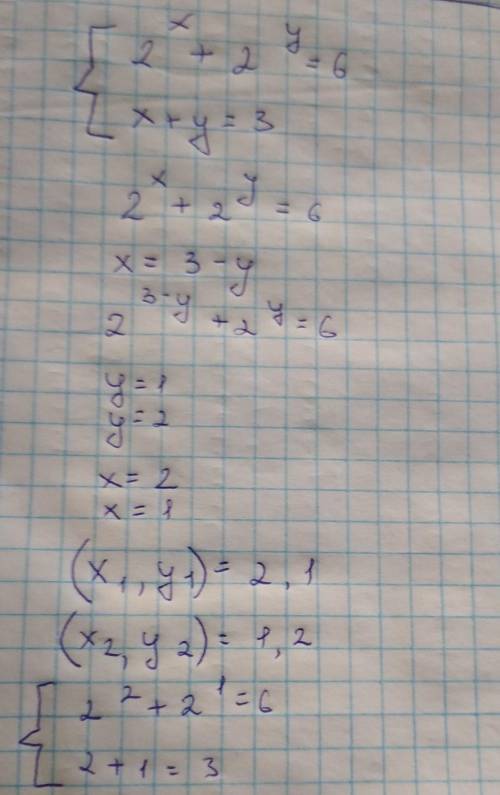 { 2^x + 2^y = 6
x + y = 3
2^x + 2^y = 6
x = 3 - y
2^(3-y) + 2^y = 6
y = 1
y = 2
x = 2
x = 1
(x₁, y₁) = 2, 1
(x₂, y₂) = 1, 2
{ 2² + 2¹ = 6
2 + 1 = 3